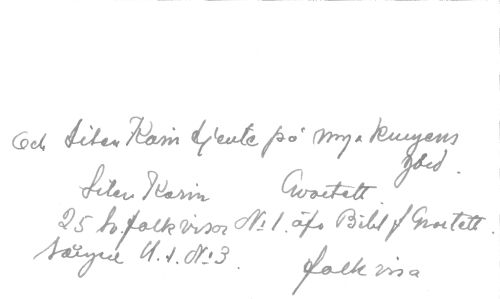 Och liten Karin tjente på unga kungens
gård.
Liten Karin Qvartett
25 h. folkvisor No 1. afs Bibl f Qvartett.
Sång U. 1. No 3.
folkvisa